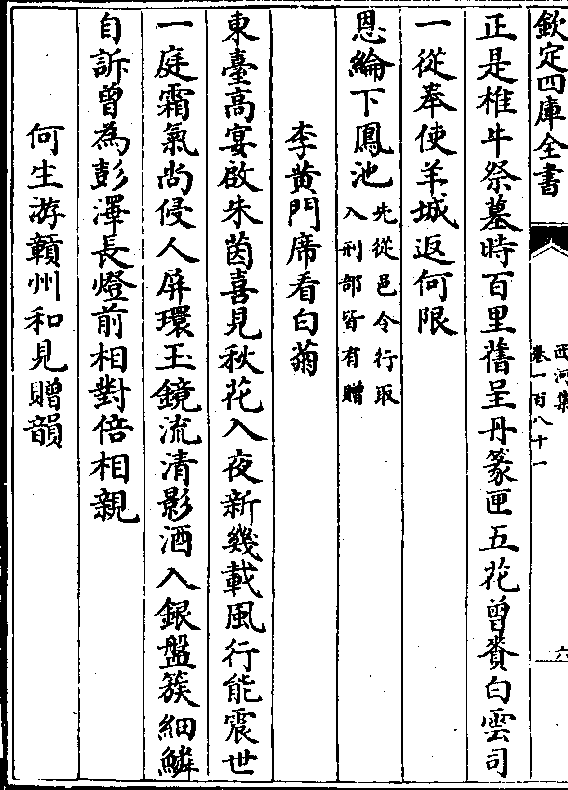 欽定四庫全書
西河集
卷一百八十一
六
正是椎牛祭墓時百里舊呈丹篆匣五花曾賚白雲司
一從奉使羊城返何限
恩綸下鳳池先從邑令行取
入刑部皆有贈
李黄門席看白菊
東臺高宴啟朱茵喜見秋花入夜新幾載風行能震世
一庭霜氣尚侵人屏環玉鏡流清影酒入銀盤簇細鱗
自訴曾為彭澤長燈前相對倍相親
何生游贛州和見贈韻